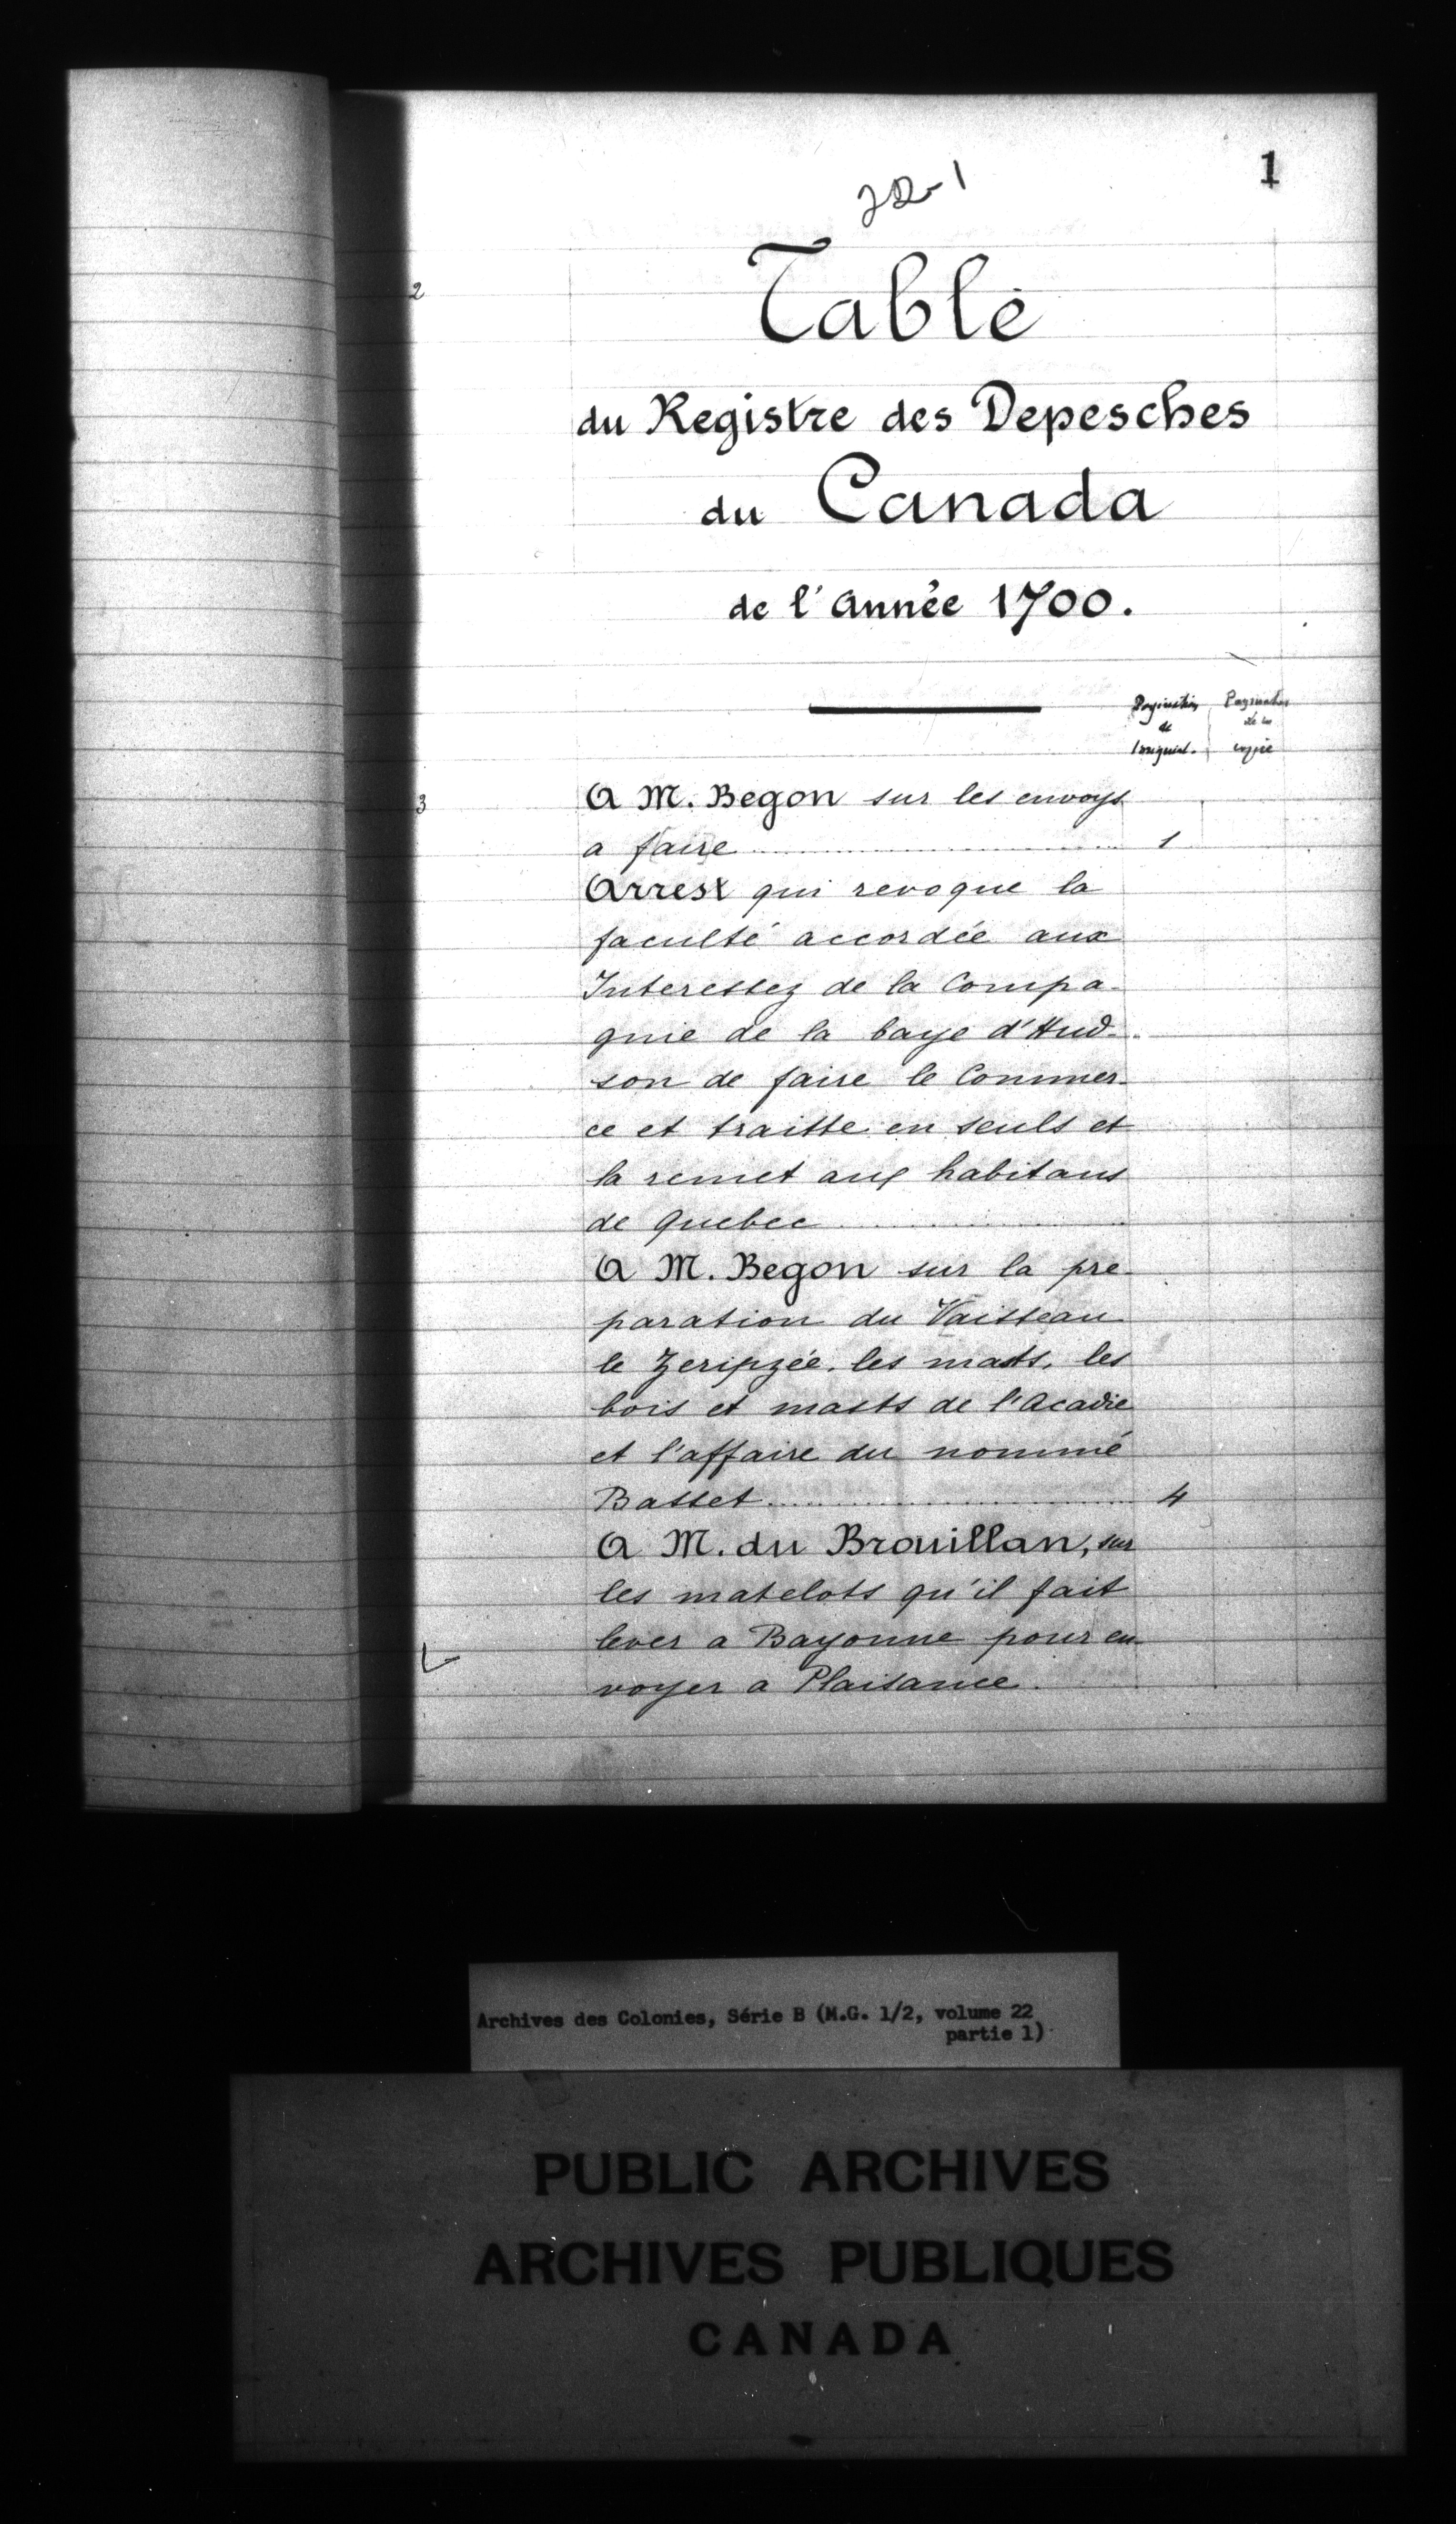 1
22-1
2
Table
du Registre des Depesches
du Canada
de l'Année 1700.
Pagination Pagination
de de la
l'original. copie
3
A M. Begon sur les envoys
a faire 1
Arrest qui revoque la
faculté accordée aux
Interessez de la Compa-
gnie de la baye d'Hud-
son de faire le Commer-
ce et traitte en seuls et
la remet aux habitans
de Quebec
A M. Begon sur la pre-
paration du Vaisseau
le Zeripzée, les mats, les
bois et masts de l'Acadie
et l'affaire du nommé
Basset 4
A M. du Brouillan, sur
les matelots qu'il fait
lever a Bayonne pour en-
voyer a Plaisance.
Archives des Colonies, Série B (M.G. 1/2, volume 22
partie 1)
PUBLIC ARCHIVES
ARCHIVES PUBLIQUES
CANADA